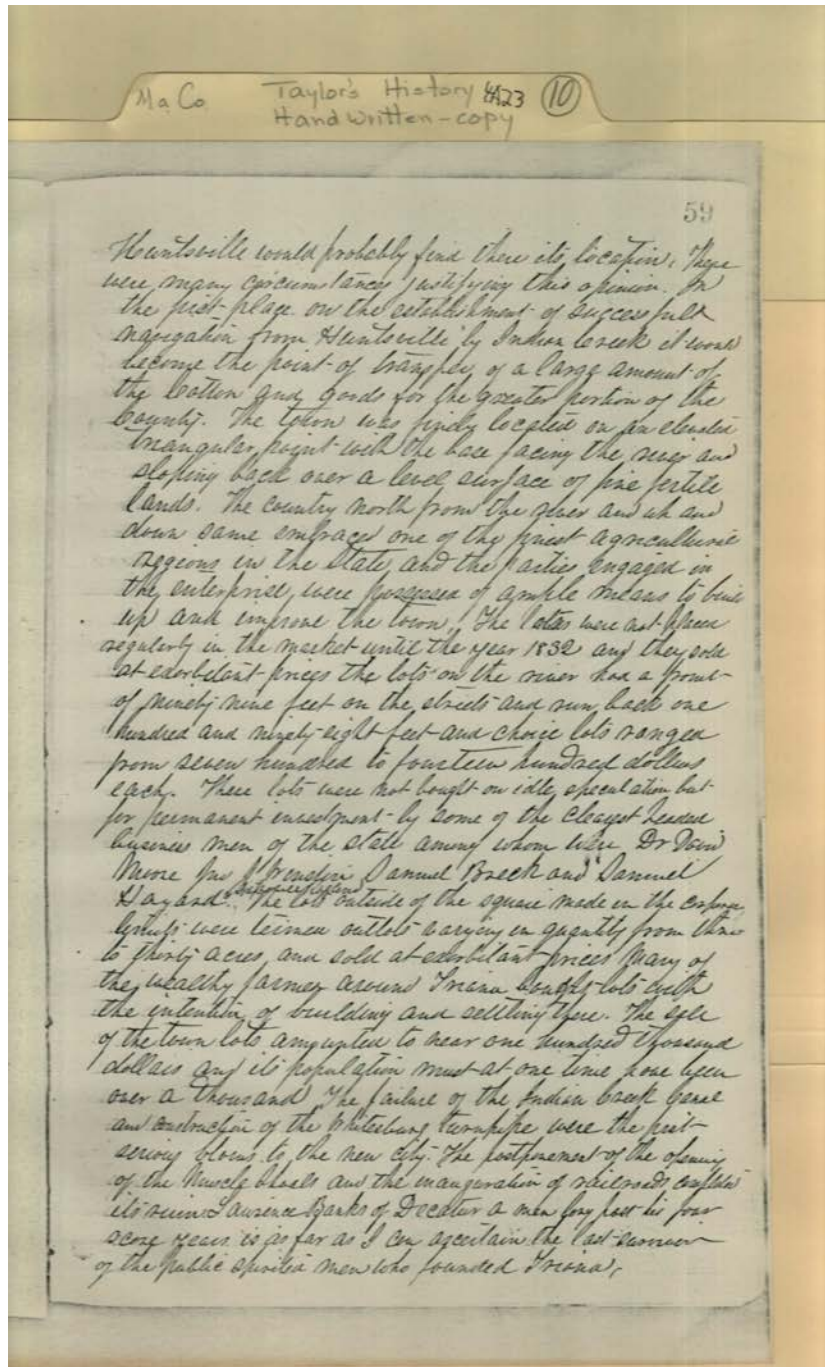 Ma Co Taylor's History 4A23 10
Handwritten-copy
59
Huntsville would probably find there its location. There
were many circumstances justifying this opinion. In
the first place on the establishment of successfull
navigation from Huntsville by Indian Creek it would
become the point of transfer of a large amount of
the Cotton and goods for the greater portion of the
County. The town was finely located on an elevated
triangular point with the base facing the river and
sloping back over a level surface of fine fertile
lands. The country north from the river and up and
down same embraced one of the finest agricultural
regions in the State, and the parties engaged in
the enterprise, were possessed of ample means to build
up and improve the town. The lots were not placed
regularly in the market until the year 1832 and they sold
at exorbitant prices the lots on the river had a front
of ninety nine feet on the streets and run back one
hundred and ninety eight feet and choice lots ranged
from seven hundred to fourteen hundred dollars
each. These lots were not bought on idle speculation but
for permanent investment by some of the clearest headed
business men of the state among whom were Dr David
Moore Samuel Breck and Samuel
Hazard. The lots outside of the square made in the
limits were termed outlots varying in quantity from three
to thirty acres, and sold at exorbitant prices Many of
the wealthy farmers around Triana bought lots with
the intention of building and settling there. The sale
of the town lots amounted to near one hundred thousand
dollars and its population must at one time have been
over a thousand. The failure of the Indian Creek Canal
and construction of the Whitesburg turnpike were the first
serious blows to the new city. The postponement of the opening
of the Muscle Shoals and the inauguration of railroads completed
its ruin Laurence Banks of Decatur a man long past his four
score years is as far as I can ascertain the last survivor
of the public spirited men who founded Triana,